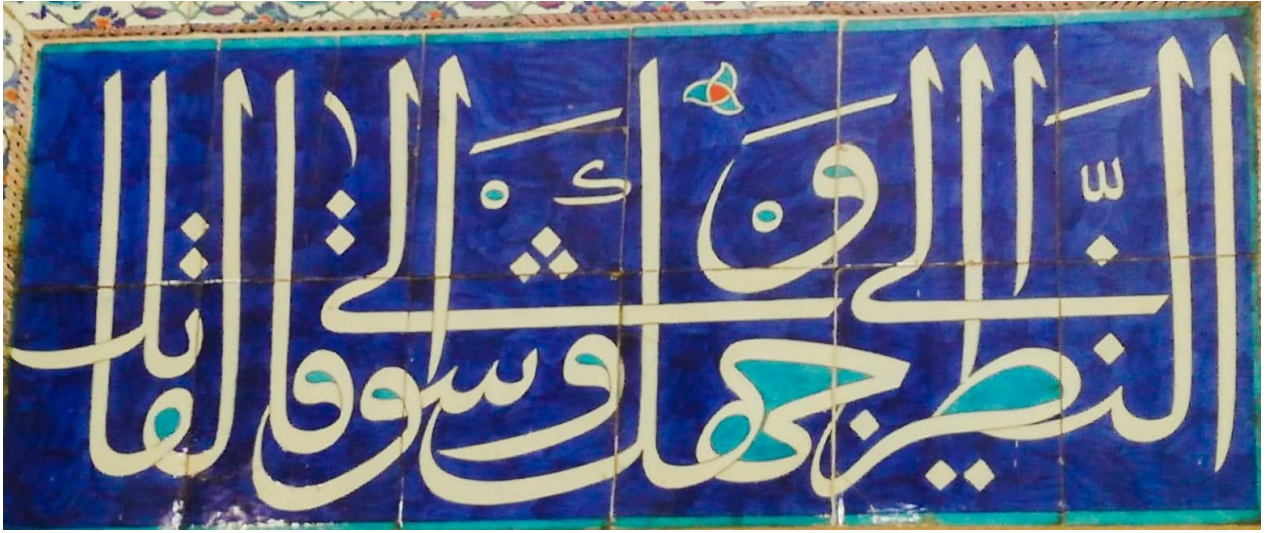 النَّظر الى وَجهك وشَوْقا الى لقائك